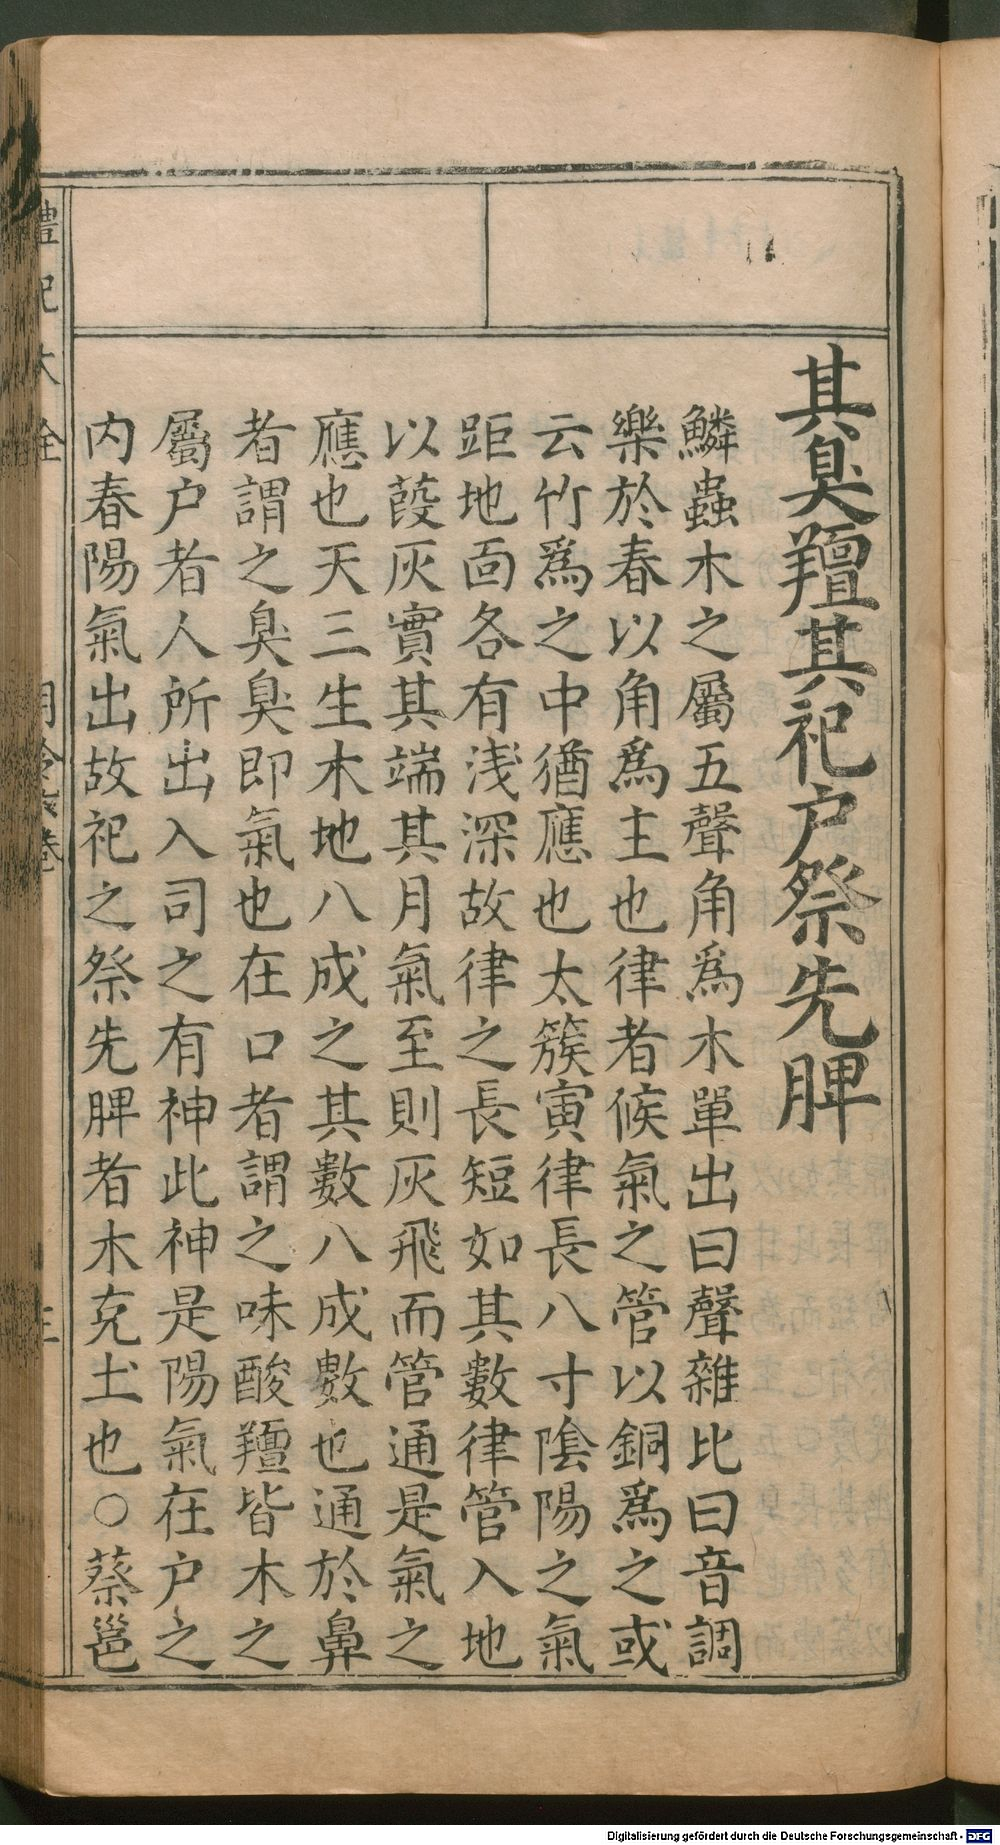 其臭羶其祀户祭先脾
鱗蟲木之屬五聲角爲木單出曰聲雜比曰音調
樂於春以角爲主也律者候氣之管以銅爲之或
云竹爲之中猶應也太簇寅律長八寸陰陽之氣
距地面各有浅深故律之長短如其數律管入地
以葭灰實其端其月氣至則灰飛而管通是氣之
應也天三生木地八成之其數八成數也通於鼻
者謂之臭臭即氣也在口者謂之味酸羶皆木之
屬户者人所出入司之有神此神是陽氣在户之
内春陽氣出故祀之祭先脾者木克土也○蔡邕
禮記大全
月令六卷
Digitalisierung gefördert durch die Deutsche Forschungsgemeinschaft - DFG